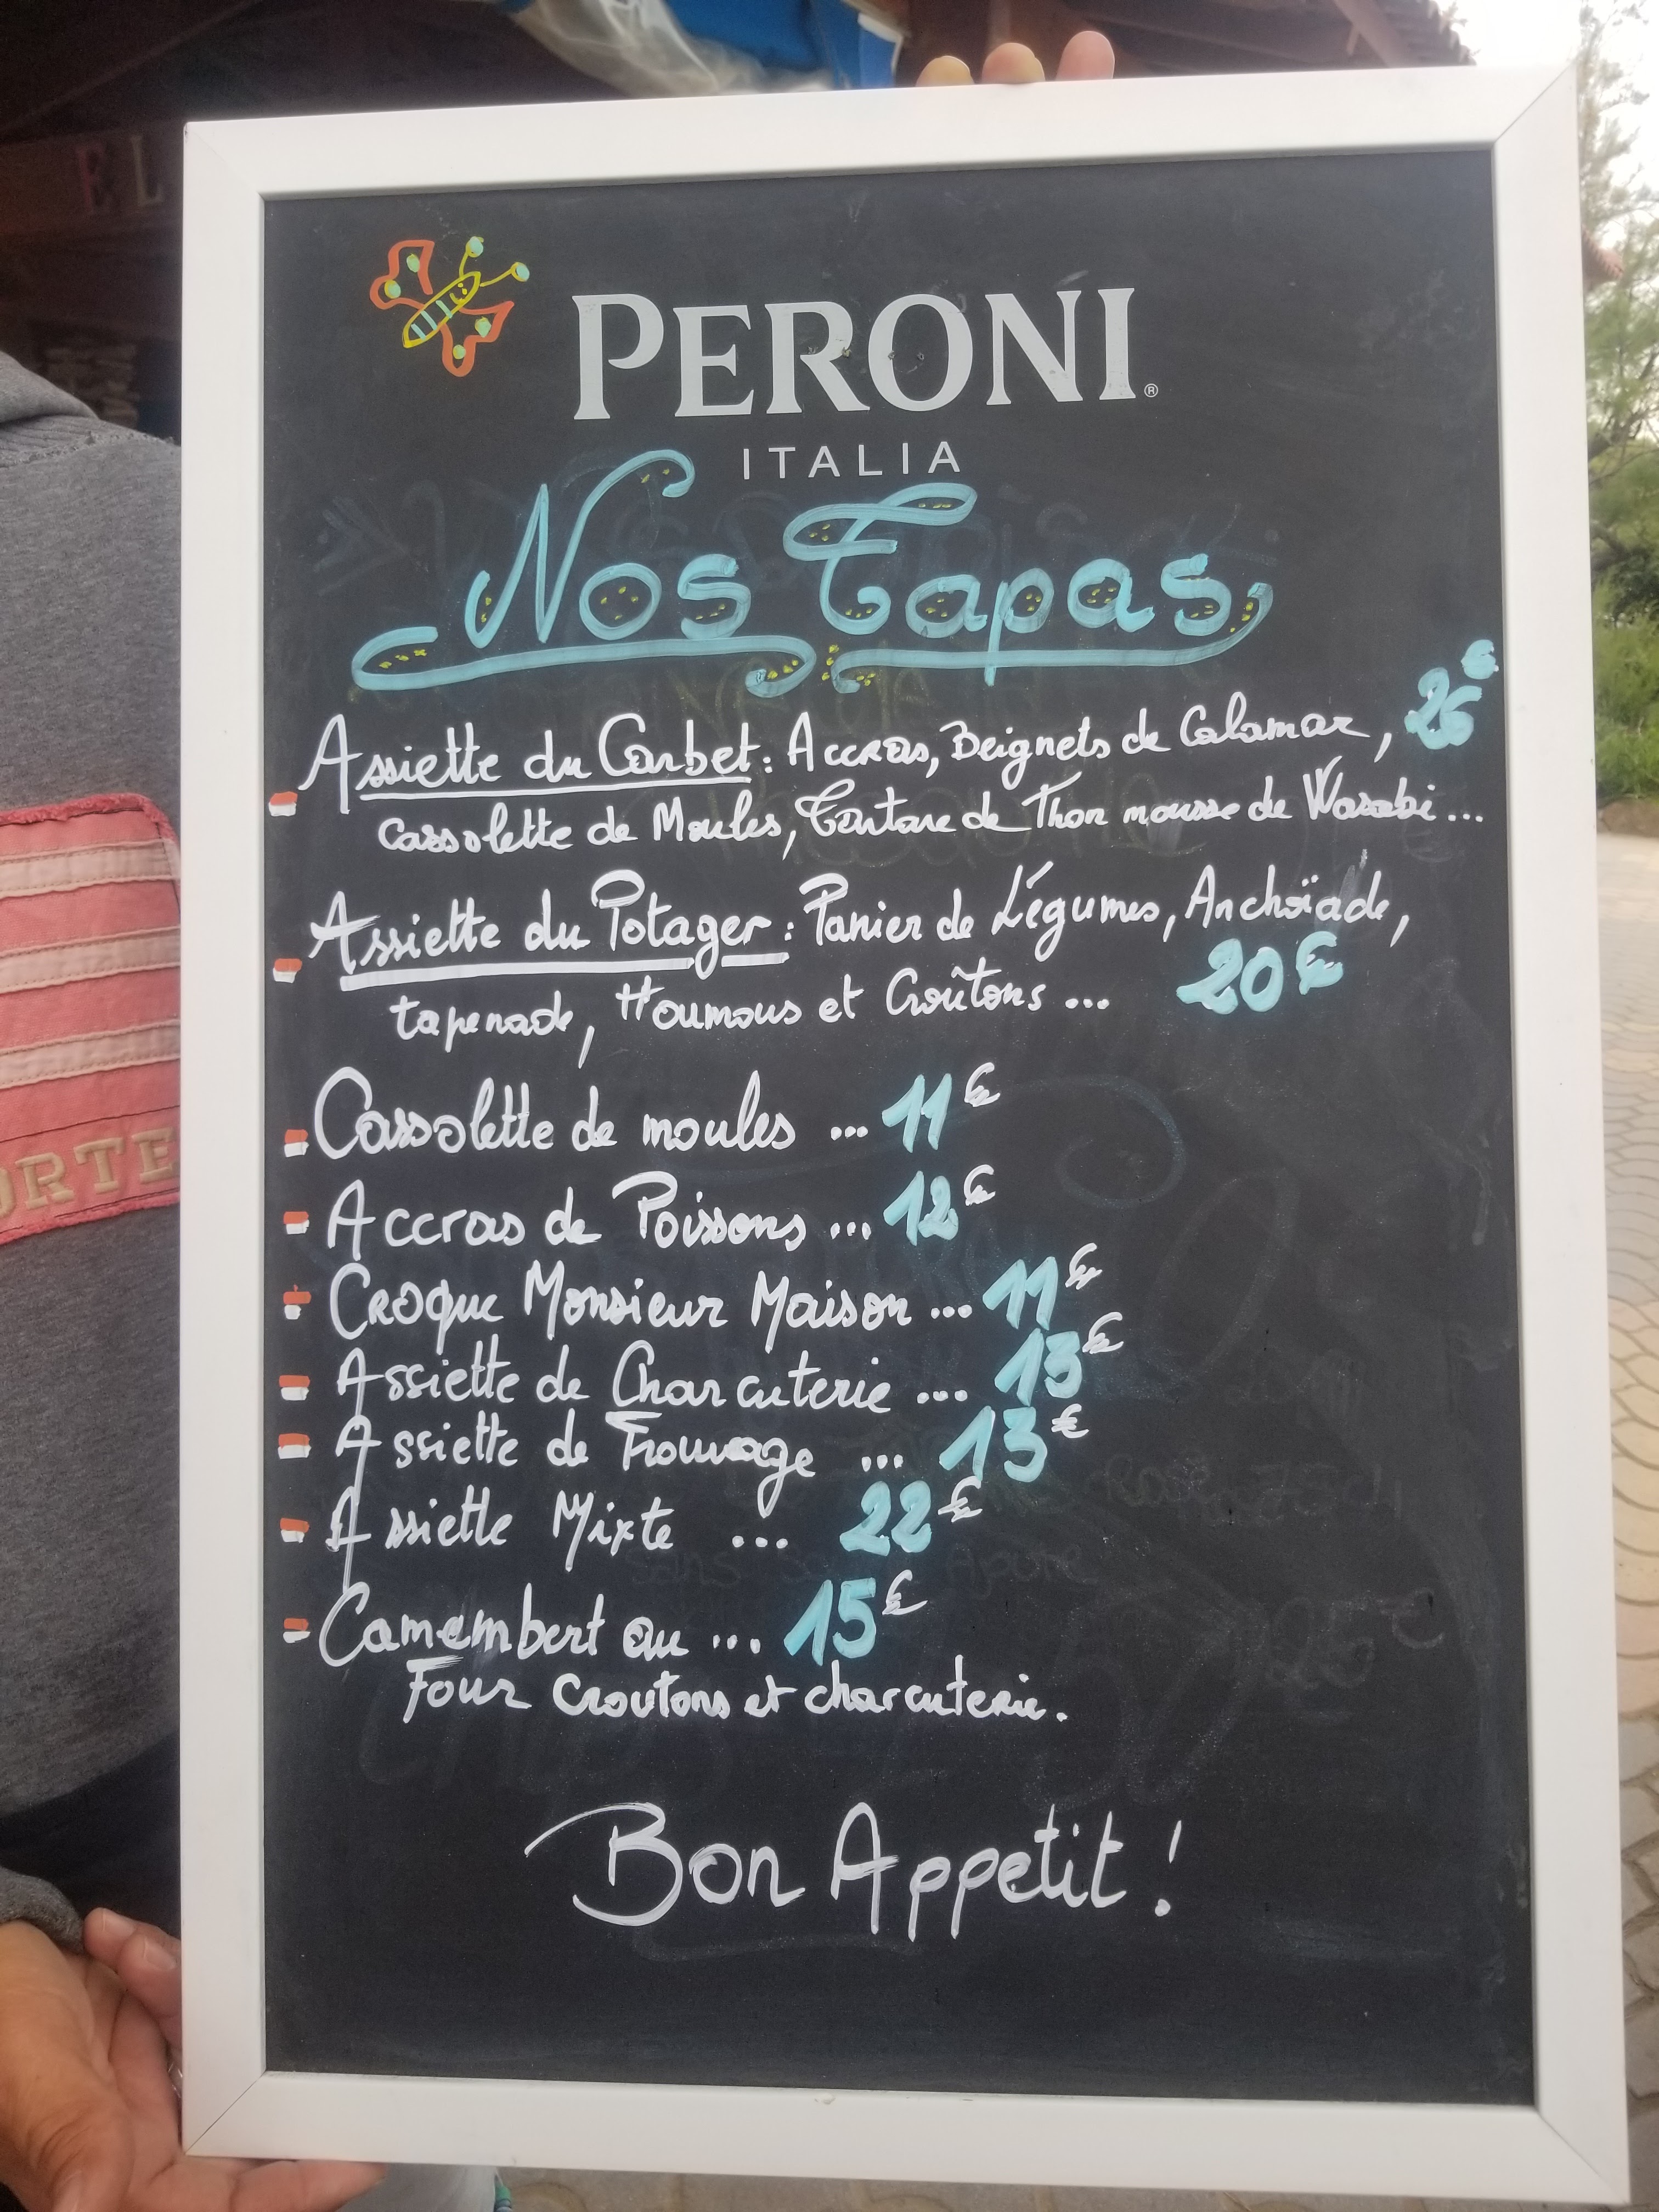 EL
PERONI®
ITALIA
Nos Tapas
Assiette du Corbet : Accras, Beignets de Calamar, 26€
Cassolette de Moules, Tartare de Thon mousse de Wasabi ...
Assiette du Potager : Panier de Légumes, Anchoïade,
tapenade, Houmous et Croûtons ... 20€
Cassolette de moules ... 11€
Accras de Poissons ... 12€
Croque Monsieur Maison ... 11€
Assiette de Charcuterie ... 13€
Assiette de Fromage ... 13€
Assiette Mixte ... 22€
Camembert au ... 15€
Four Croutons et charcuterie.
Bon Appetit !
ORTE